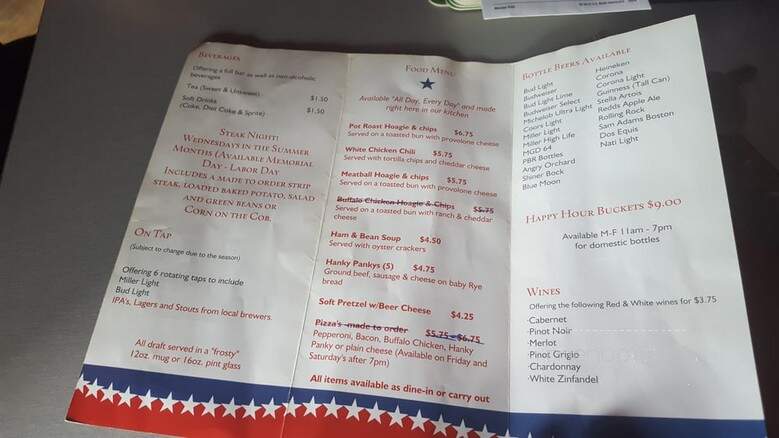 BEVERAGES
Offering a full bar as well as non-alcoholic
beverages
Tea (Sweet & Unsweet) $1.50
Soft Drinks $1.50
(Coke, Diet Coke & Sprite)
STEAK NIGHT!
WEDNESDAYS IN THE SUMMER
MONTHS (AVAILABLE MEMORIAL
DAY - LABOR DAY
INCLUDES A MADE TO ORDER STRIP
STEAK, LOADED BAKED POTATO, SALAD
AND GREEN BEANS OR
CORN ON THE COB.
ON TAP
(Subject to change due to the season)
Offering 6 rotating taps to include
Miller Light
Bud Light
IPA's, Lagers and Stouts from local brewers.
All draft served in a "frosty"
12oz. mug or 16oz. pint glass
FOOD MENU
Available "All Day, Every Day" and made
right here in our kitchen
Pot Roast Hoagie & chips $6.75
Served on a toasted bun with provolone cheese
White Chicken Chili $5.75
Served with tortilla chips and cheddar cheese
Meatball Hoagie & chips $5.75
Served on a toasted bun with provolone cheese
Buffalo Chicken Hoagie & Chips $5.75
Served on a toasted bun with ranch & cheddar
cheese
Ham & Bean Soup $4.50
Served with oyster crackers
Hanky Pankys (5) $4.75
Ground beef, sausage & cheese on baby Rye
bread
Soft Pretzel w/Beer Cheese $4.25
Pizza's -made to order $5.75 - $6.75
Pepperoni, Bacon, Buffalo Chicken, Hanky
Panky or plain cheese (Available on Friday and
Saturday's after 7pm)
All items available as dine-in or carry out
BOTTLE BEERS AVAILABLE
Bud Light
Budweiser
Bud Light Lime
Budweiser Select
Michelob Ultra Light
Coors Light
Miller Light
Miller High Life
MGD 64
PBR Bottles
Angry Orchard
Shiner Bock
Blue Moon
Heineken
Corona
Corona Light
Guinness (Tall Can)
Stella Artois
Redds Apple Ale
Rolling Rock
Sam Adams Boston
Dos Equis
Nati Light
HAPPY HOUR BUCKETS $9.00
Available M-F 11am - 7pm
for domestic bottles
WINES
Offering the following Red & White wines for $3.75
·Cabernet
·Pinot Noir
·Merlot
·Pinot Grigio
·Chardonnay
·White Zinfandel